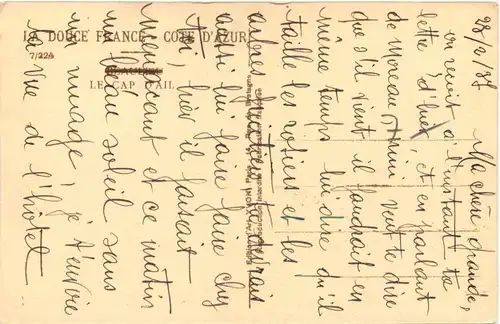 LA DOUCE FRANCE - CÔTE D'AZUR
7/224
LE CAP D'AIL
28/2/37
Ma chère grande,
on reçoit à l'instant ta
lettre d'hier, et en parlant
de Moreau, Mimi veut te dire
que s'il vient il faudrait en
même temps lui dire qu'il
taille les rosiers et les
arbres
aussi lui faire faire chez
toi, hier il faisait
menaçant et ce matin
beau soleil sans
nuage ! je t'envoie
la vue de l'hôtel